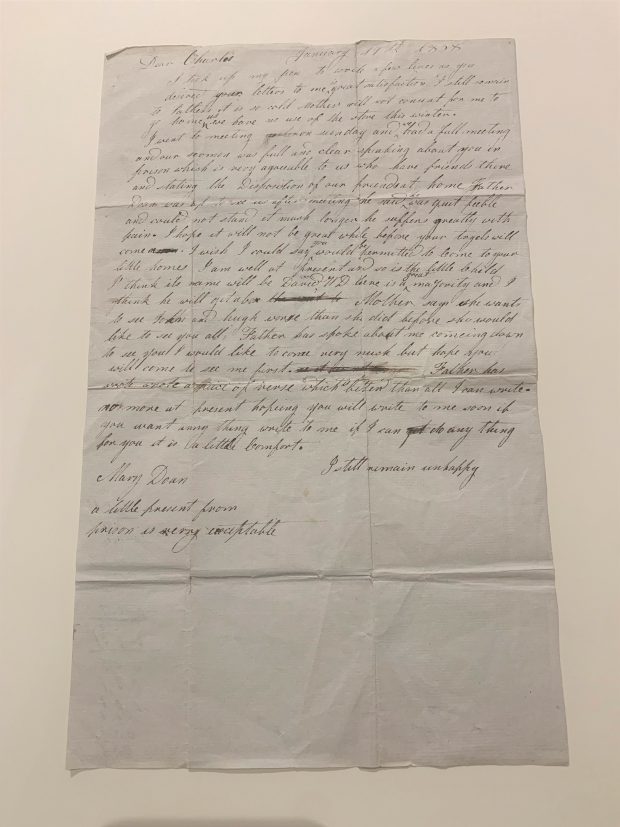 Dear Charles January 11th 1838
I took up my pen to write a few lines as you
desired your letters to me great satisfaction I still remain
to Fathers it is so cold Mother will not consent for me to
go home us we have no use of the stove this winter.
I went to meeting on sunday and we had a full meeting
and our sermon was full and clear speaking about you in
prison which is very agreeable to us who have friends there
and stating the disposition of our friends at home Father
Doan was up to see us after meeting he said he was quit feeble
and could not stand it much longer he suffers greatly with
pain. I hope it will not be great while before your togels will
come I wish I could say you would be permitted to come to your
little homes I am well at present and so is the little child
I think its name will be David WD there is a great majority and I
think he will git abe Mother says she wants
to see John and hugh worse than she did before she would
like to see you all, Father has spoke about me comeing down
to see you I would like to come very much but hope you
will come to see me first. Father has
wrote wrote a peice of verse which is better than all I can write
no more at present hopeing you will write to me soon if
you want anny thing write to me if I can do any thing
for you it is a little Comfort.
I still remain unhappy
Mary Doan
a little present from
prison is verry exceptable